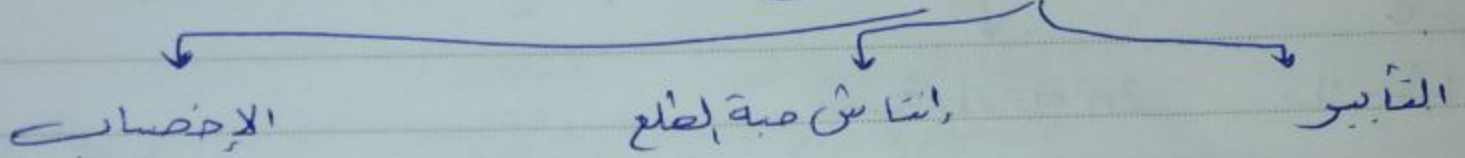 التأبير إنتاش حبة الطلع الإخصاب